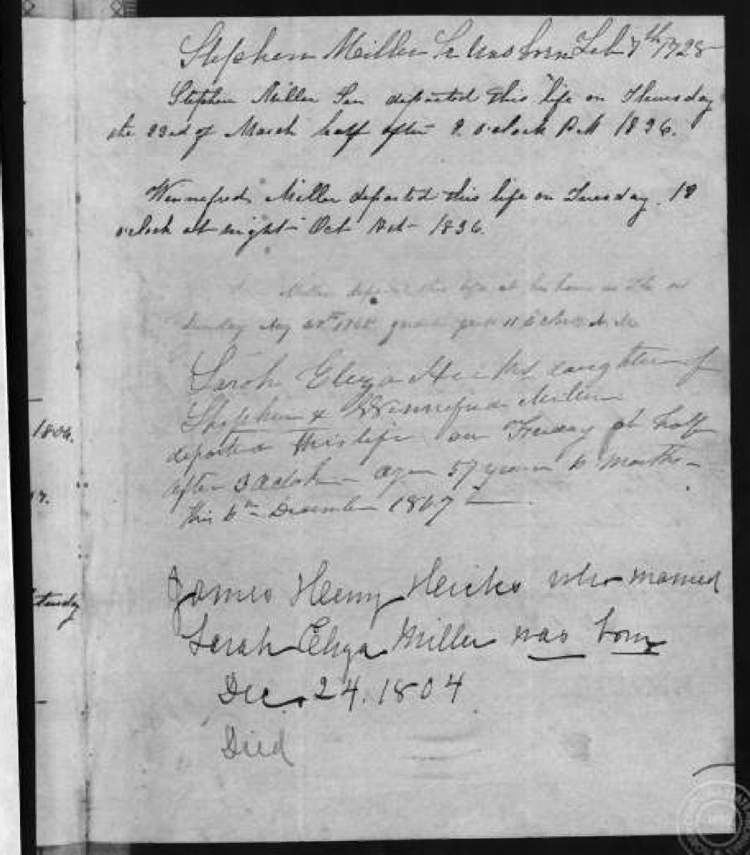 Stephen Miller Sr was born Feb 7th 1728
Stephen Miller Sen departed this life on Thursday
the 23rd of March half after 8 o'clock P.M 1826.
Wennefred Miller departed this life on Tuesday. 10
o'clock at night Oct 1836.
Miller this life at his home in the
Sunday Aug
Sarah Eliza Hicks daughter of
Stephen & Wennefred Miller
departed this life on Friday at half
after 3 Oclock aged 57 years 6 months
this 6th December 1867
1806.
James Henry Hicks who married
Sarah Eliza Miller was born
Dec. 24. 1804
Died